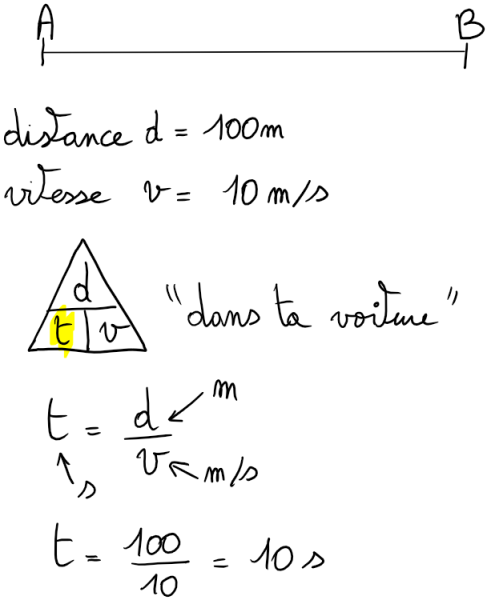 A B
distance d = 100m
vitesse v = 10 m/s
d
t v
"dans ta voiture"
t = d/v
m
s
m/s
t = 100/10 = 10 s